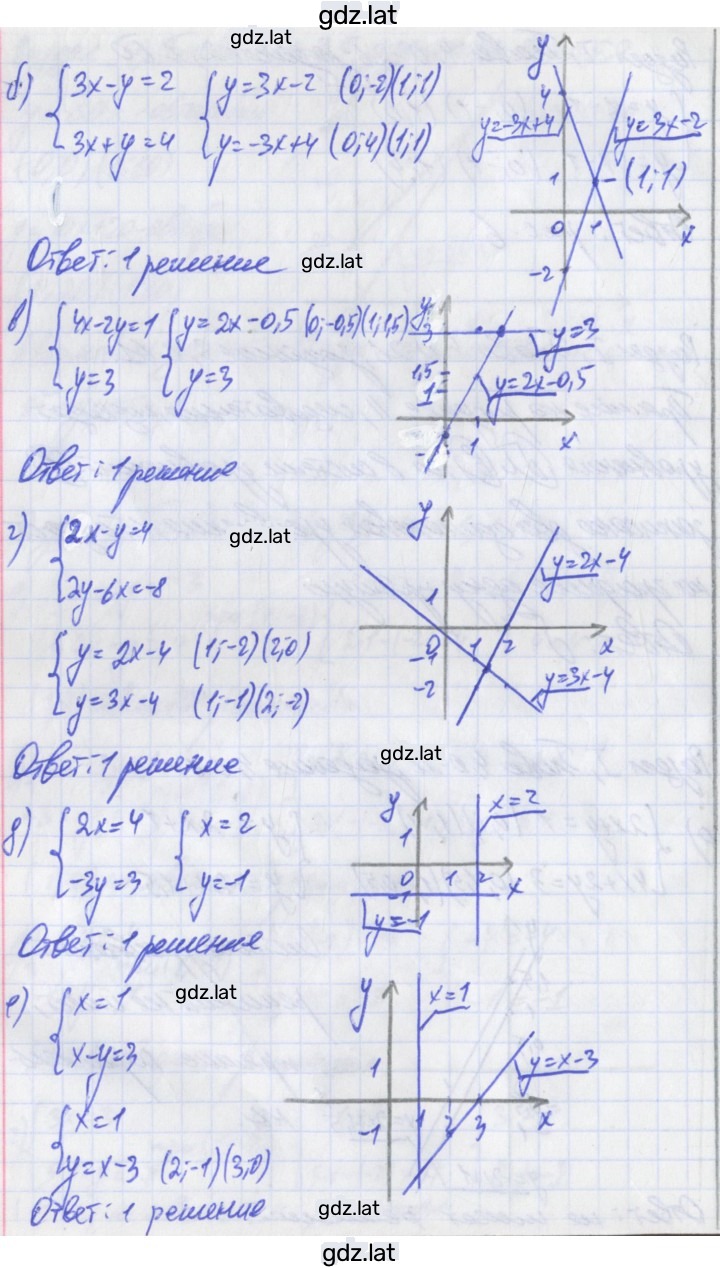 gdz.lat
gdz.lat
б) 3x-y=2 y=3x-2 (0;-2)(1;1)
3x+y=4 y=-3x+4 (0;4)(1;1)
y
4
y=-3x+4 y=3x-2
1 (1;1)
0 1 x
-2
Ответ: 1 решение gdz.lat
в) 4x-2y=1 y=2x-0,5 (0;-0,5)(1;1,5)
y=3 y=3
y
3 y=3
1,5
1 y=2x-0,5
1 x
Ответ: 1 решение
г) 2x-y=4 gdz.lat
2y-6x=-8
y=2x-4 (1;-2)(2;0)
y=3x-4 (1;-1)(2;-2)
y
y=2x-4
1
0 1 2 x
-1
-2 y=3x-4
Ответ: 1 решение gdz.lat
д) 2x=4 x=2
-3y=3 y=-1
y x=2
1
0 1 2 x
-1
y=-1
Ответ: 1 решение
gdz.lat
е) x=1
x-y=3
x=1
y=x-3 (2;-1)(3;0)
y x=1
1 y=x-3
1 2 3 x
-1
Ответ: 1 решение gdz.lat
gdz.lat